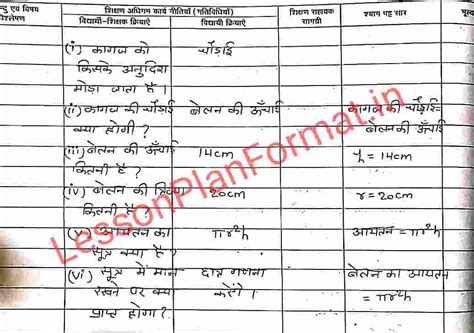 न्दु एवं विषय
वश्लेषण
शिक्षण अधिगम कार्य नीतियाँ (गतिविधियाँ)
विद्यार्थी-शिक्षक क्रियाएँ
विद्यार्थी क्रियाएँ
शिक्षण सहायक
सामग्री
श्याम पट्ट सार
मूल्य
(i) कागज को
किसके अनुदिश
मोड़ा जाता है।
चौड़ाई
(ii) कागज की चौड़ाई
क्या होगी?
बेलन की ऊँचाई
कागज की चौड़ाई=
बेलन की ऊँचाई
(iii) बेलन की ऊँचाई
कितनी है?
14cm
h = 14cm
(iv) बेलन की त्रिज्या
कितनी है?
20cm
r = 20cm
(v) आयतन का
सूत्र क्या है?
πr²h
आयतन = πr²h
(vi) सूत्र में मान
रखने पर क्या
प्राप्त होगा?
छात्र गणना
करेंगे।
बेलन का आयतन
= πr²h
LessonPlanFormat.in